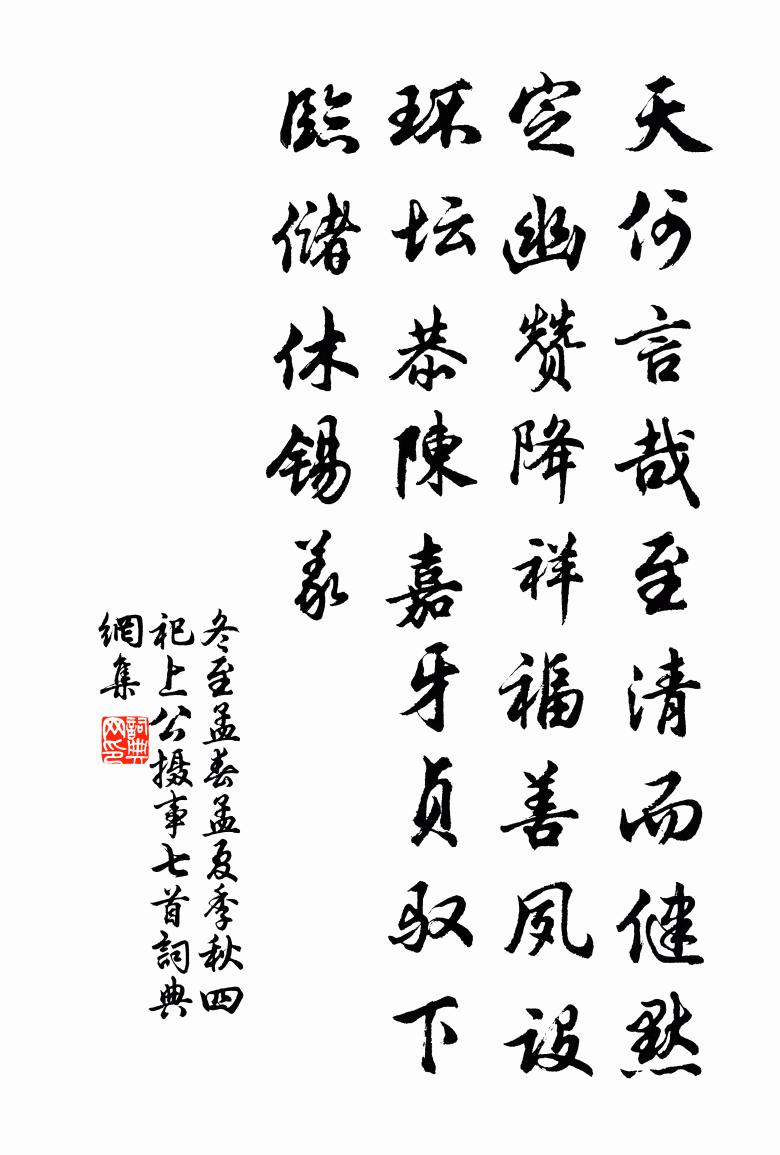 天何言哉至清而健默
定幽赞降祥福善夙设
环坛恭陳嘉牙贞驭下
臨儲休锡羡
冬至孟春孟夏季秋四
祀上公摄事七首詞典
網集
詞典
网印